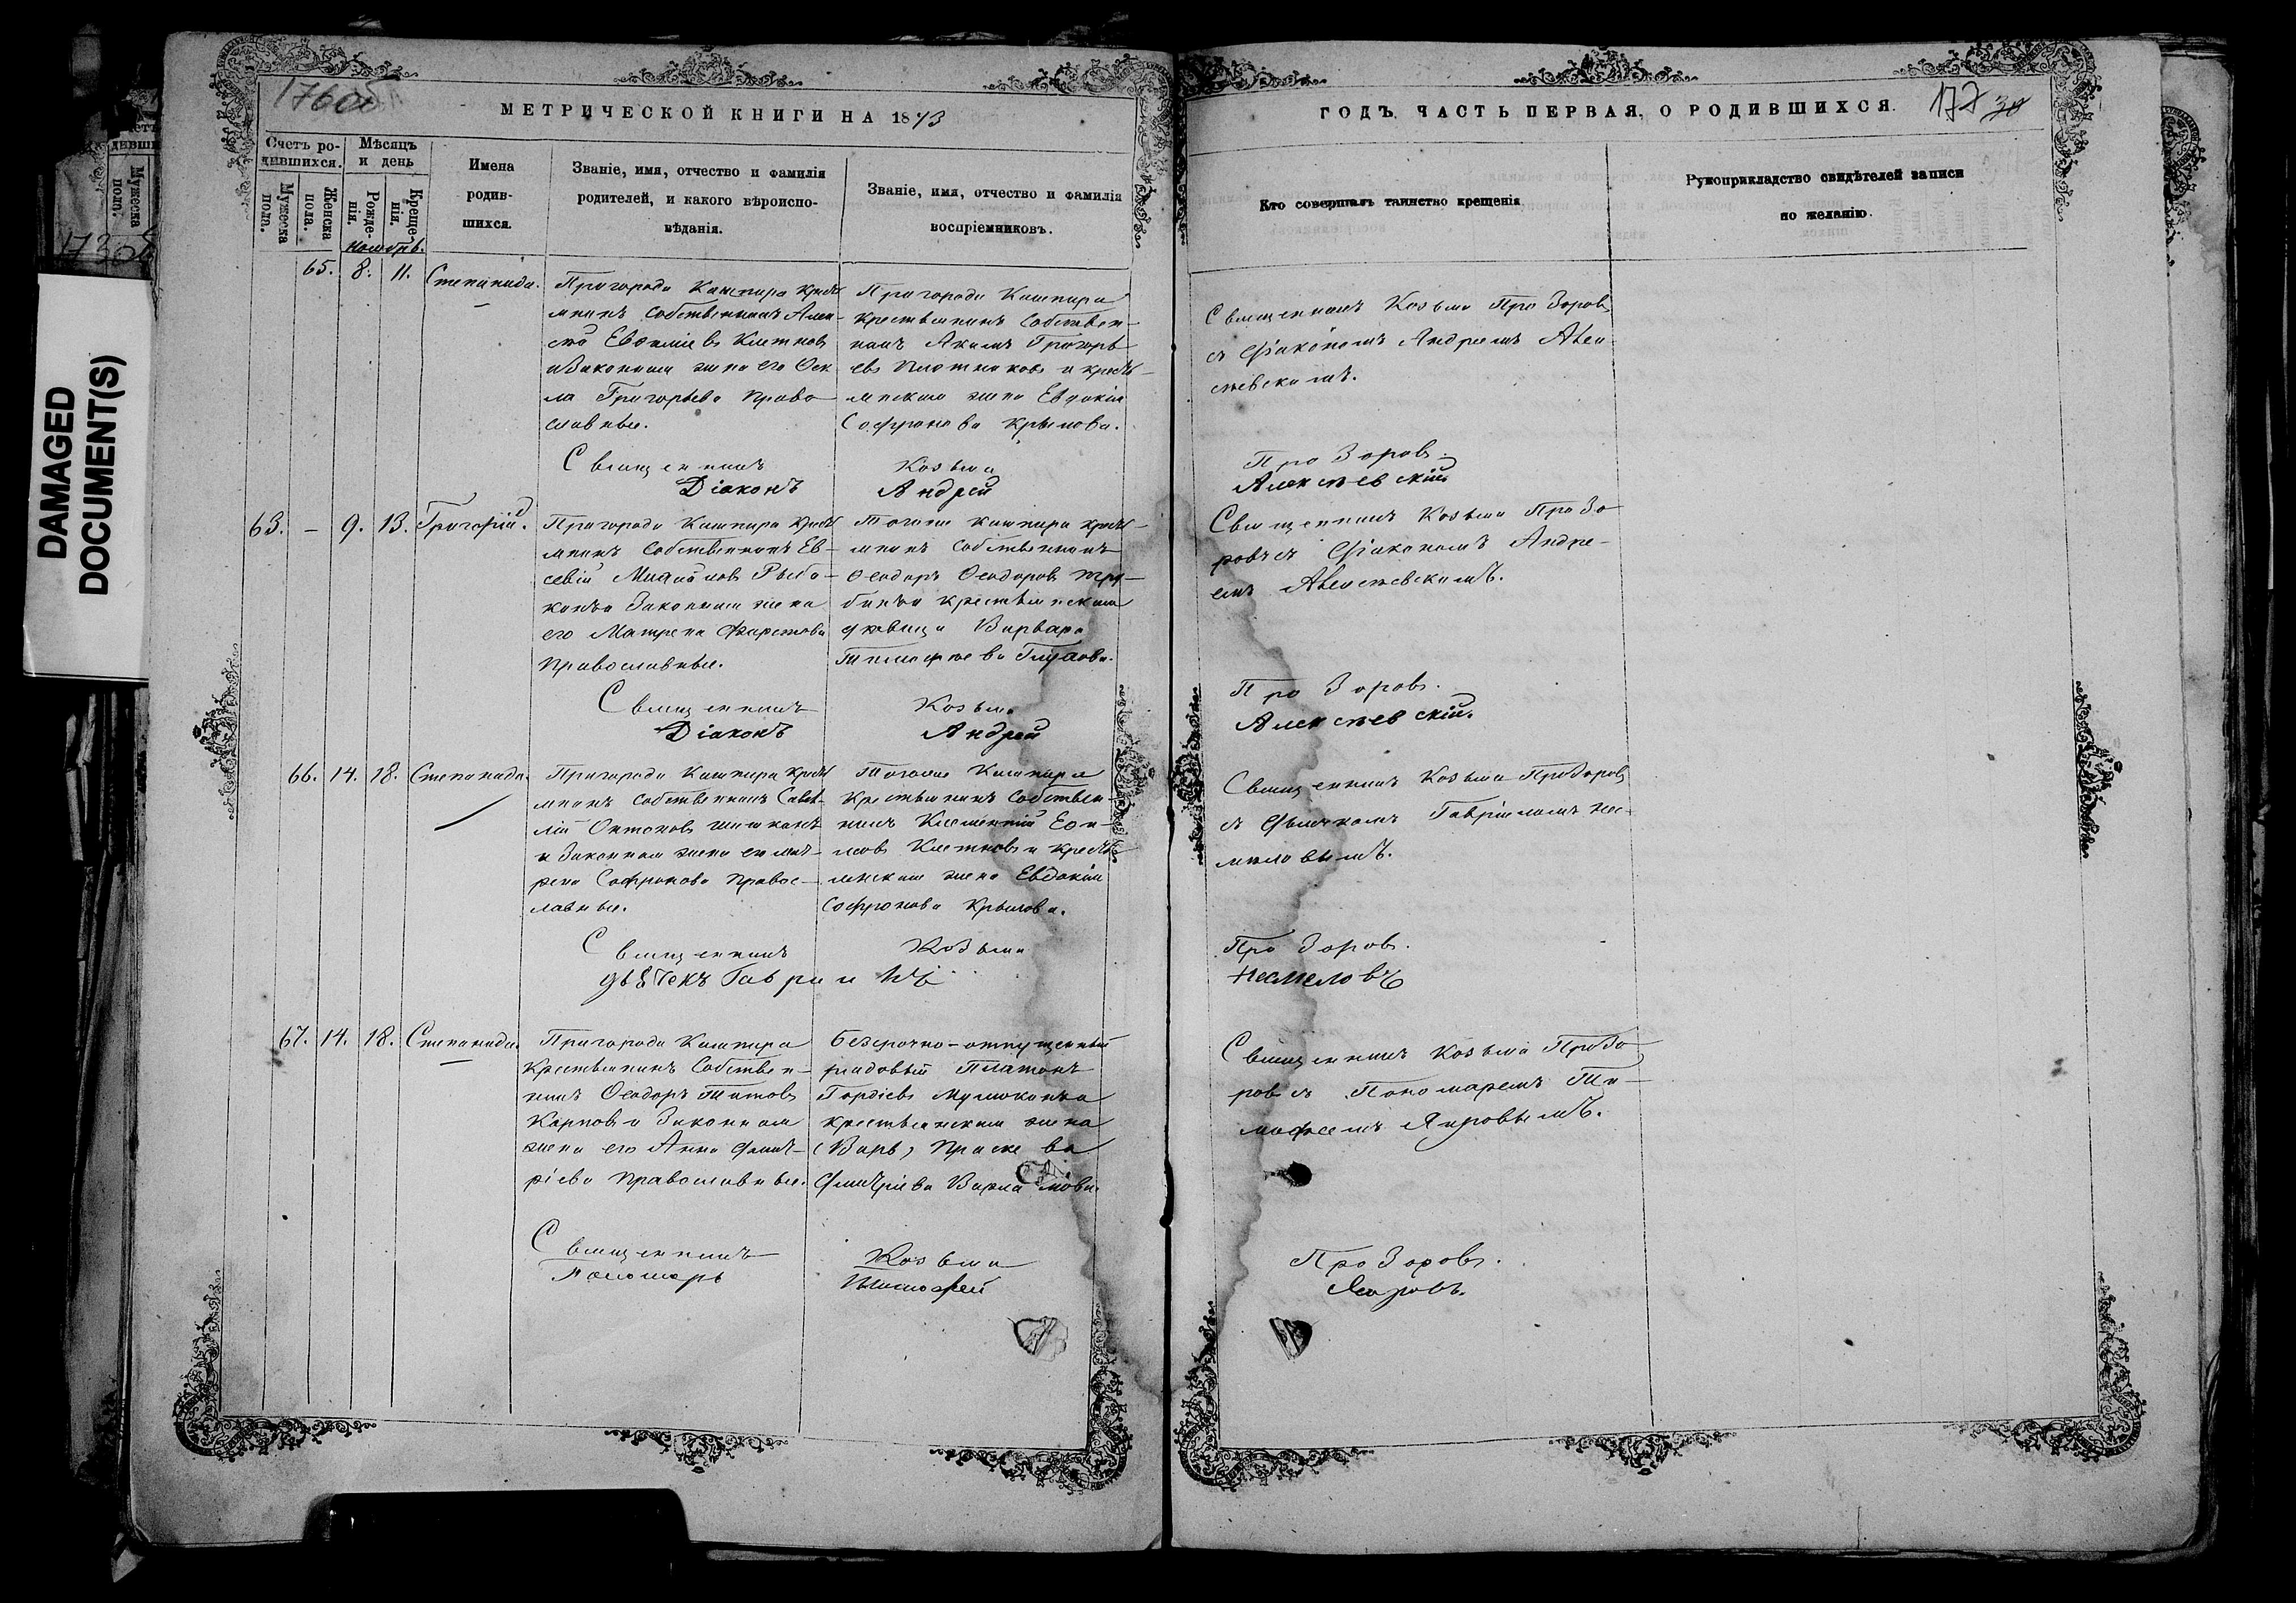 DAMAGED
DOCUMENT(S)
176об
МЕТРИЧЕСКОЙ КНИГИ НА 1873
Счетъ ро-
дившихся.
Мѣсяцъ
и день
Мужеска
пола.
Женска
пола.
Рожде-
нія.
Креще-
нія.
Имена
родив-
шихся.
Званіе, имя, отчество и фамилія
родителей, и какого вѣроиспо-
вѣданія.
Званіе, имя, отчество и фамилія
воспріемниковъ.
Ноябрь.
65. 8. 11. Степанида.
Пригорода Кашпира кресть
янинъ собственникъ Алек-
сѣй Евѳиміевъ Клетновъ
и законная жена его Ѳек
ла Григорьева Право
славные.
Пригорода Кашпира
крестьянинъ собствен-
никъ Якимъ Григорь
евъ Плотниковъ и кресть-
янская жена Евдокія
Софронова Крылова.
Священникъ Козьма
Діаконъ Андрей
63. – 9. 13. Григорій.
Пригорода Кашпира кресть
янинъ собственникъ Ев-
севій Михайловъ
и законная жена
его Матрена
Православные.
Тогоже Кашпира кресть-
янинъ собственникъ
Ѳеодоръ Ѳеодоровъ
крестьянская
дѣвица Варвара
Тимофеева
Священникъ Козьма
Діаконъ Андрей
66. 14. 18. Степанида.
Пригорода Кашпира кресть
янинъ собственникъ Савел-
лій Антоновъ
и законная жена его Мат-
рена Софронова Правос-
лавные.
Тогоже Кашпира
крестьянинъ собствен-
никъ Клементій
Клетновъ и кресть
янская жена Евдокія
Софронова Крылова.
Священникъ Козьма
дьячекъ Гавриилъ
67. 14. 18. Степанида.
Пригорода Кашпира
Крестьянинъ Собствен-
никъ Ѳеодоръ Титовъ
Карповъ и Законная
жена его Анна Димит-
ріева Православные.
Безсрочно-отпущенный
рядовый Платонъ
Гордіевъ
крестьянская жена
(Варв)
Димитріева Варламова.
Священникъ Козьма
Пономарь Тимофей
ГОДЪ, ЧАСТЬ ПЕРВАЯ, О РОДИВШИХСЯ.
177
30
Кто совершалъ таинство крещенія
Рукоприкладство свидѣтелей записи
по желанію.
Священникъ Козьма Прозоровъ
съ Діакономъ Андреемъ Алек
сѣевскимъ.
Прозоровъ.
Алексѣевскій.
Священникъ Козьма Прозо
ровъ съ Діакономъ Андре-
емъ Алексѣевскимъ.
Прозоровъ.
Алексѣевскій.
Священникъ Козьма Прозоровъ
съ Дьячкомъ Гавріиломъ Нес-
меловымъ.
Прозоровъ.
Несмеловъ
Священникъ Козьма Прозо
ровъ съ Пономаремъ Ти-
мофеемъ Яировымъ.
Прозоровъ.
Яировъ.